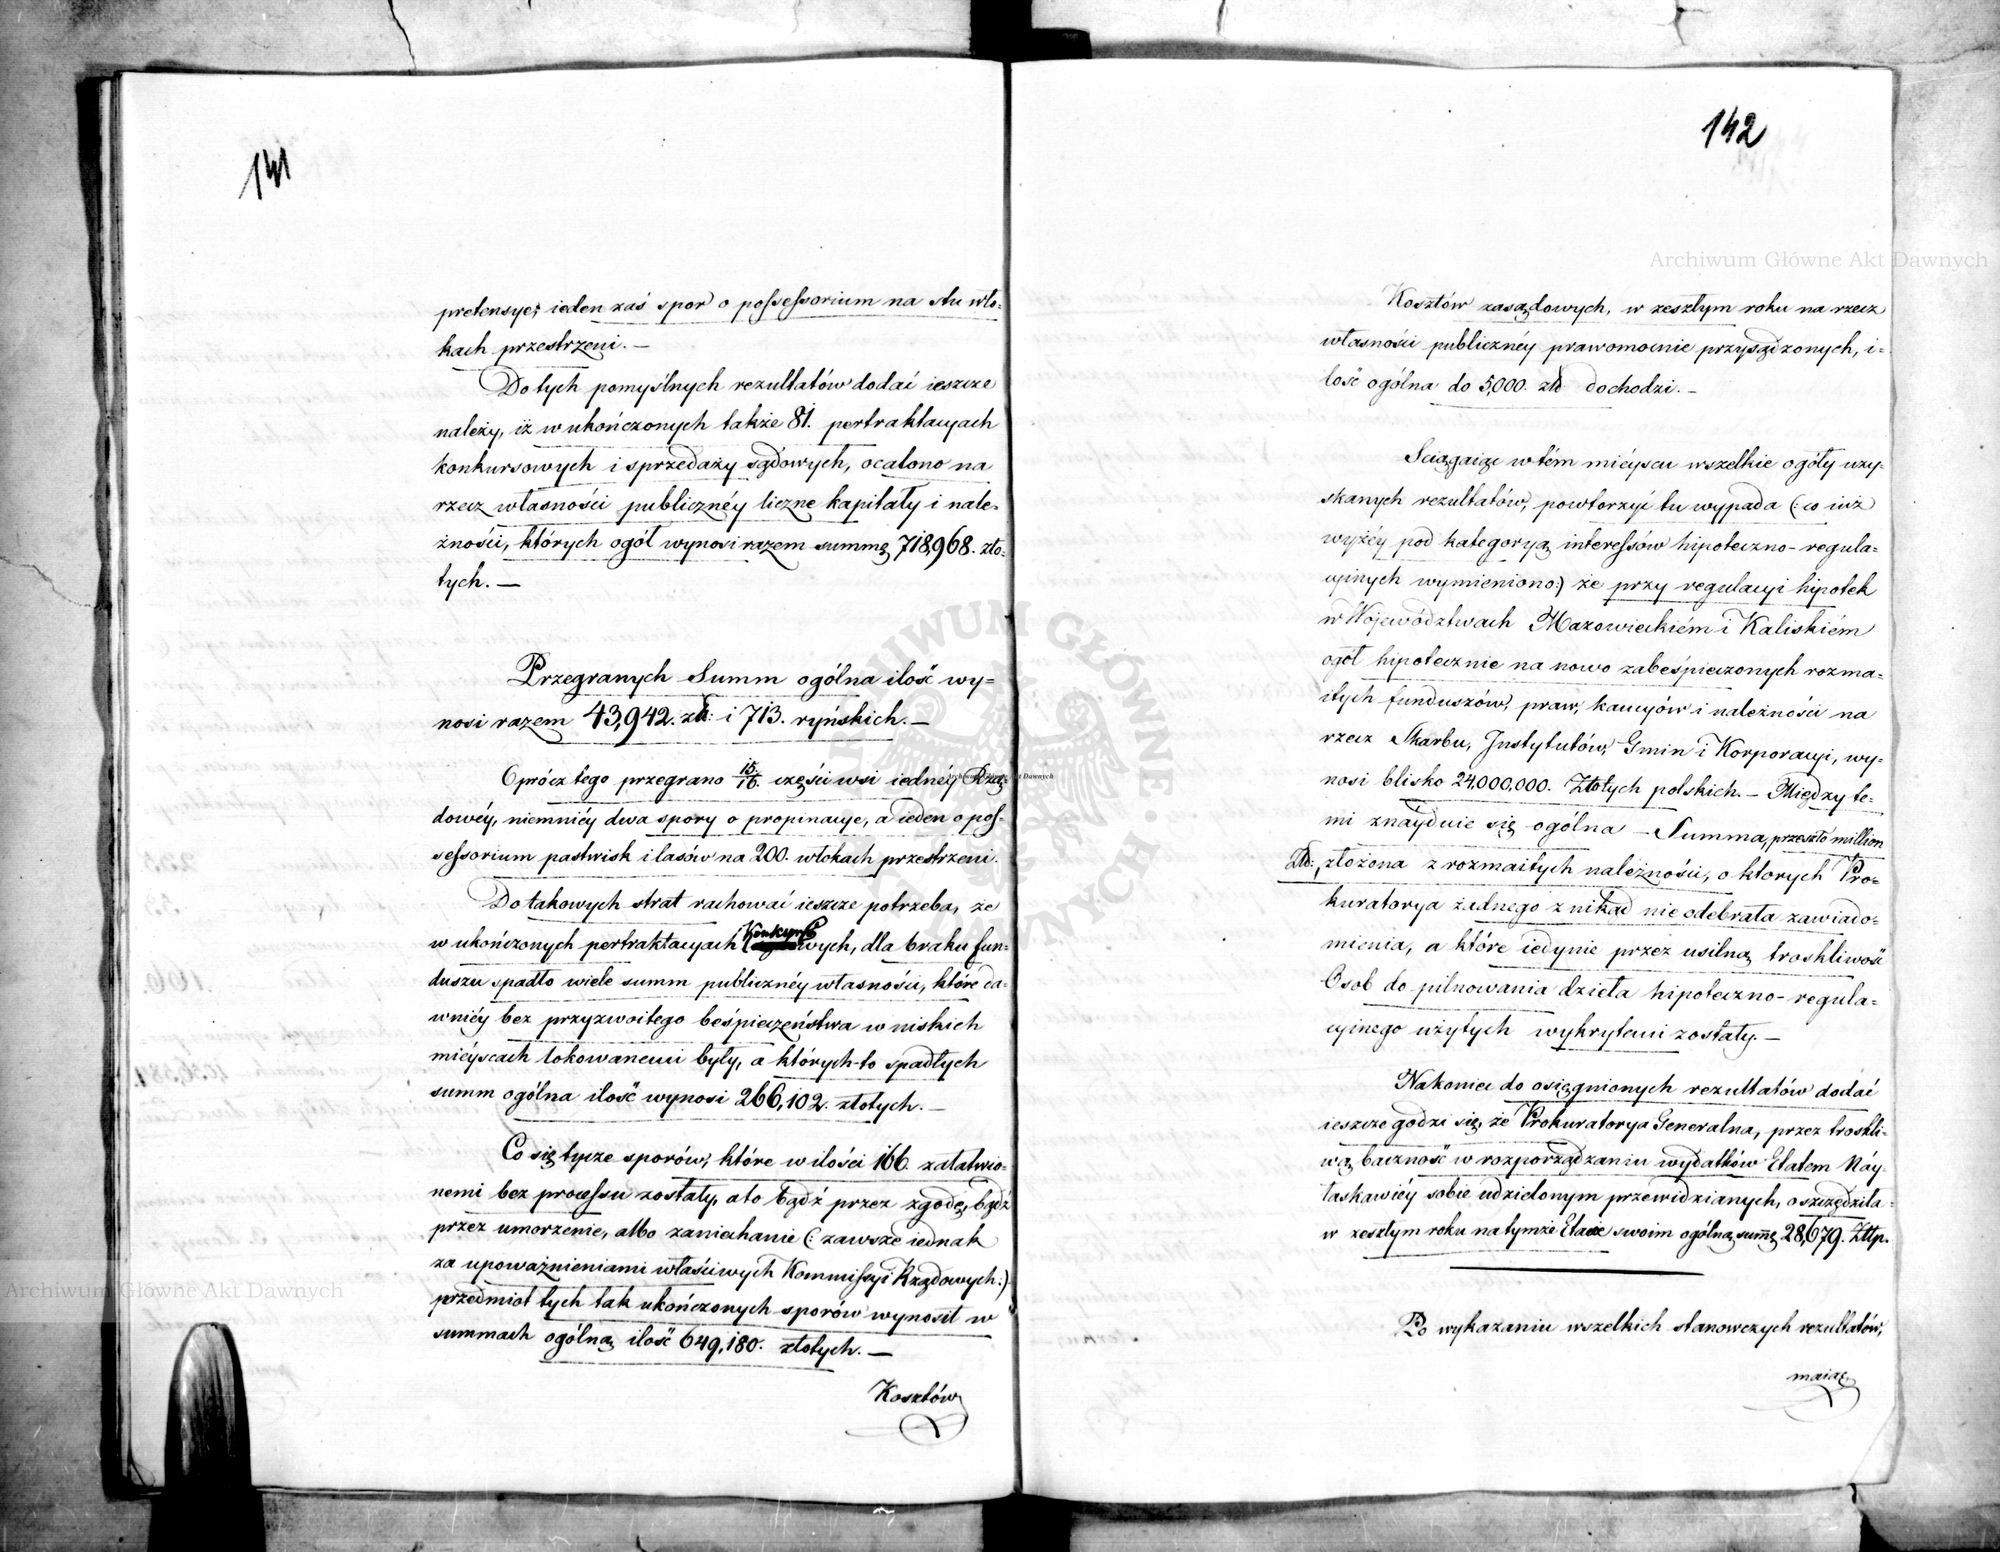 141
pretensye; ieden zaś spor o possessorium na stu wło-
kach przestrzeni. —
Do tych pomyślnych rezultatów dodać ieszcze
należy, iż w ukończonych także 81. pertraktacyach
konkursowych i sprzedaży sądowych, ocalono na
rzecz własności publicznéy liczne kapitały i nale-
żności, których ogół wynosi razem summę 718,968. zło-
tych. —
Przegranych Summ ogólna ilość wy-
nosi razem 43,942. zł: i 713. ryńskich. —
Oprócz tego przegrano 15/16. części wsi iednéy Rzą-
dowéy, niemniéy dwa spory o propinacye, a ieden o pos-
sessorium pastwisk i lasów na 200. włokach przestrzeni.
Do takowych strat rachować ieszcze potrzeba, że
w ukończonych pertraktacyach Konkursowych, dla braku fun-
duszu spadło wiele summ publicznéy własności, które da-
wniéy bez przyzwoitego beśpieczeństwa w niskich
miéyscach lokowanemi były, a których-to spadłych
summ ogólna ilość wynosi 266,102. złotych. —
Co się tycze sporów, które w ilości 166. załatwio-
nemi bez processu zostały, a to bądź przez zgodę, bądź
przez umorzenie, albo zaniechanie (: zawsze iednak
za upoważnieniami właściwych Kommissyi Rządowych :)
przedmiot tych tak ukończonych sporów wynosił w
summach ogólną ilość 649,180. złotych. —
Kosztów
142
Kosztów zasądowych, w zeszłym roku na rzecz
własności publicznéy prawomocnie przysądzonych, i-
lość ogólna do 5,000. zł: dochodzi. —
Sciągaiąc w tém miéyscu wszelkie ogóły uzy-
skanych rezultatów, powtorzyć tu wypada (: co iuż
wyżéy pod kategoryą interessów hipoteczno-regula-
cyinych wymieniono :) że przy regulacyi hipotek
w Województwach Mazowieckiém i Kaliskiém
ogół hipotecznie na nowo zabeśpieczonych rozma-
itych funduszów, praw, kaucyów i należności na
rzecz Skarbu, Instytutów, Gmin i Korporacyi, wy-
nosi blisko 24,000,000. Złotych polskich. — Między te-
mi znayduie się ogólna — Summa, przeszło million
Zło:, złożona z rozmaitych należności, o ktorych Pro-
kuratorya żadnego znikąd nie odebrała zawiado-
mienia, a które iedynie przez usilną troskliwość
Osob do pilnowania dzieła hipoteczno-regula-
cyinego użytych wykrytemi zostały. —
Nakoniec do osiągnionych rezultatów dodać
ieszcze godzi się, że Prokuratorya Generalna, przez troskli-
wą baczność w rozporządzaniu wydatków Etatem Náy-
łaskawiéy sobie udzielonym przewidzianych, oszczędziła
w zeszłym roku na tymże Etacie swoim ogólną summę 28,679. Złtp.
Po wykazaniu wszelkich stanowczych rezultatów,
maiąc
Archiwum Główne Akt Dawnych
Archiwum Główne Akt Dawnych
Archiwum Główne Akt Dawnych
ARCHIWUM GŁÓWNE AKT DAWNYCH